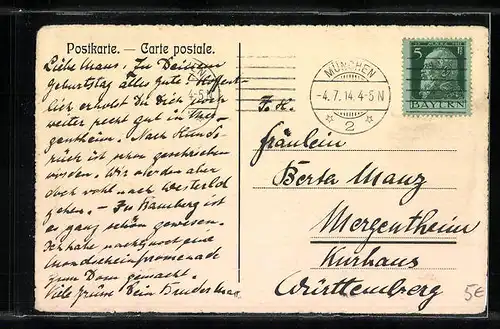 Postkarte. — Carte postale.
Liebe Maus. Zu Deinem
Geburtstag alles Gute. Hoffent-
lich erholst Du Dich noch
weiter recht gut in Mer-
gentheim. Nach
ist schon geschrieben
worden. Wir werden aber
doch wohl nach Westerland
gehen. — In Bamberg ist
es ganz schön gewesen.
Ich habe nachts noch eine
Mondscheinpromenade
zum Dom gemacht.
Viele Grüsse Dein Bruder
4-5 N
MÜNCHEN
-4.7.14.4-5N
2
5 5
BAYERN
Fräulein
Berta Manz
Mergentheim
Kurhaus
Württemberg
5€